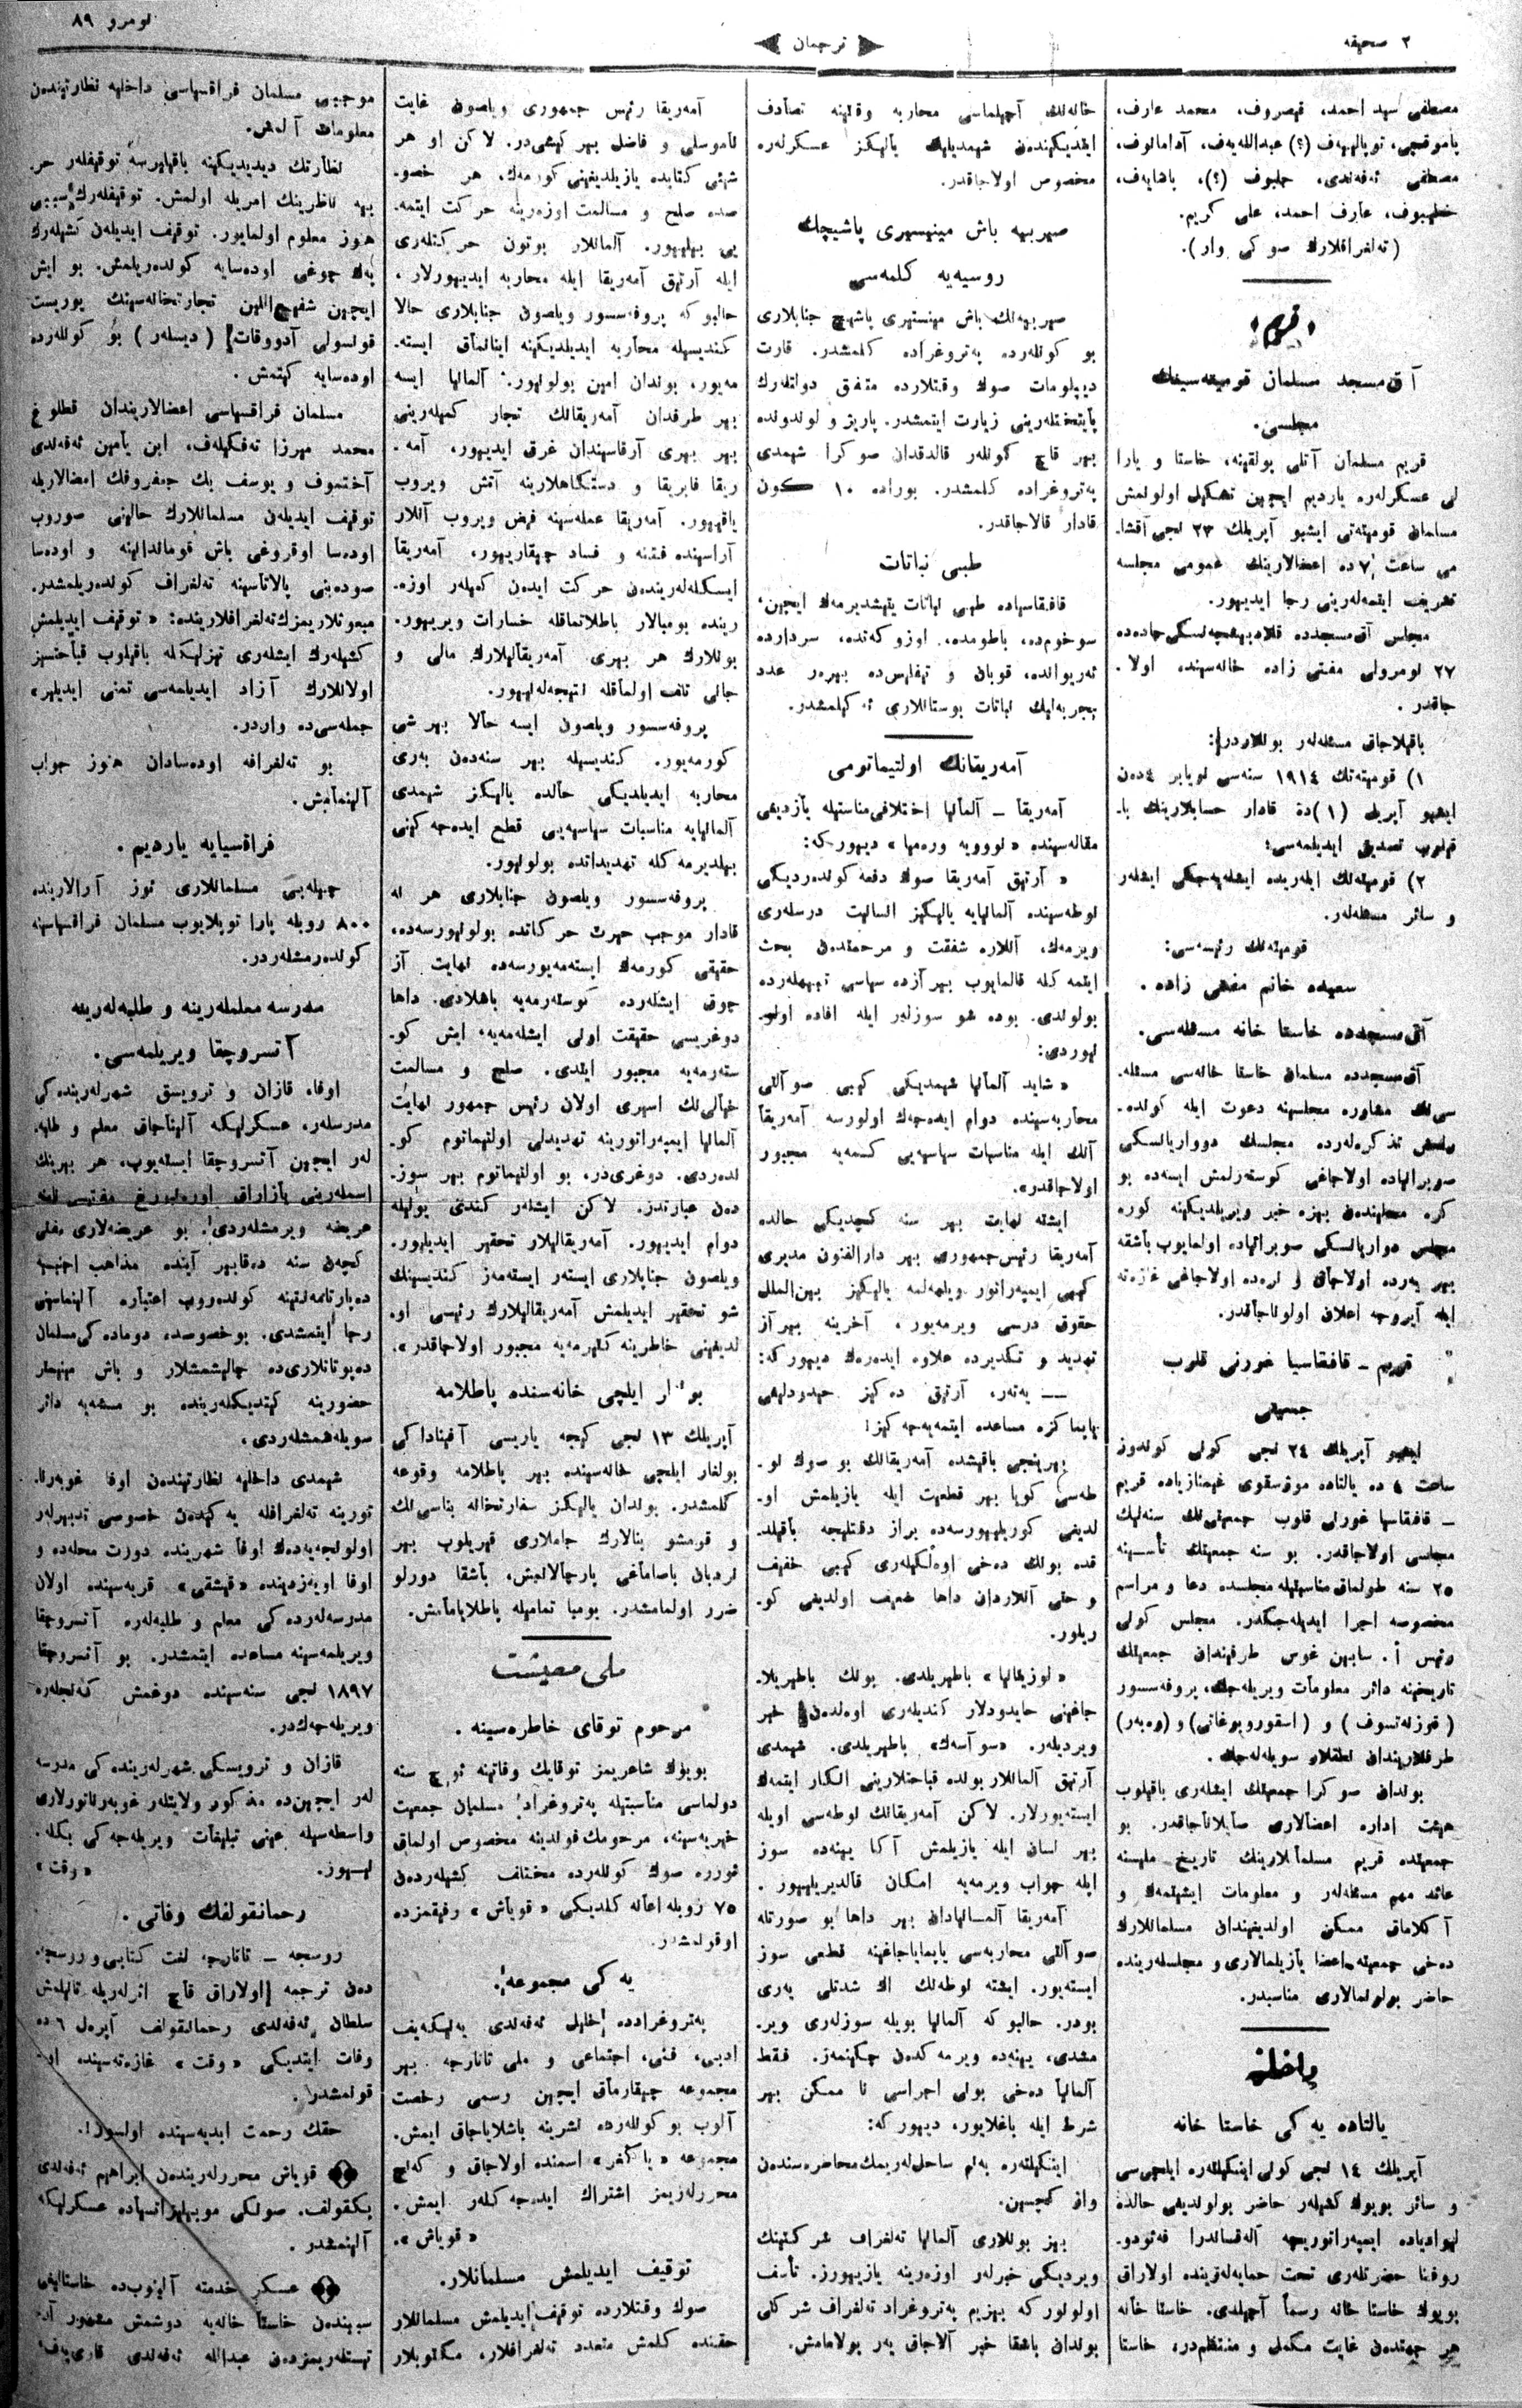 ۲ صحیفه
ترجمان
نومرو ۸۹
مصطفی سید احمد، قیصروف، محمد عارف،
یاموقچی، توپالییەف (؟) عبداللەیەف، آدامانوف،
مصطفی ئەفەندی، حلیوف (؟)، باشایەف،
خلیبوف، عارف احمد، علی کریم.
(تەلغرافلارڭ صوکی وار).
قریم
آق‌مسجد مسلمان قومیتەسینڭ
مجلسی.
قریم مسلمان آتلی پولقینە، خاستا و یارا
لی عسکرلەرە یاردیم ایچین تشکیل اولونمش
مسلمان قومیتەتی ایشبو آپریلڭ ۲۳ نجی آقشا-
می ساعت ۷ دە اعضالارینڭ عمومی مجلسە
تشریف ایتمەلەرینی رجا ایدیپور.
مجلس آق‌مسجددە قلادبیشچەنسکی جادەدە
۲۷ نومرولی مفتی زادە خانەسیندە اولا-
جاقدر.
باقیلاجاق مسئلەلەر بونلاردر:
۱) قومیتەنڭ ۱۹۱٤ سنەسی نویابر ٤دەن
ایشبو آپریل (۱)دە قادار حسابلارینڭ با-
قیلوب تصدیق ایدیلمەسی؛
۲) قومیتەنڭ ایلەریدە ایشلەیەجکی ایشلەر
و سائر مسئلەلەر.
قومیتەنڭ رئیسەسی:
سعیدە خانم مفتی زادە.
آق‌مسجددە خاستا خانە مسئلەسی.
آق‌مسجددە مسلمان خاستا خانەسی مسئلە-
سی‌نڭ مشاورە مجلسینە دعوت ایلە کوندە-
رلمش تذکرەلەردە مجلسڭ دوواریانسکی
صوبرانیادە اولاجاغی کوستەرلمش ایسەدە بو
کرە محلیندەن بیزە خبر ویریلدیکینە کورە
مجلس دواریانسکی صوبرانیادە اولمایوب باشقە
بیر یەردە اولاجاق و نرەدە اولاجاغی غازەتە
ایلە آیروجە اعلان اولوناجاقدر.
قریم - قافقاسیا غورنی قلوب
جمعیتی
ایشبو آپریلڭ ۲٤ نجی کونی کوندوز
ساعت ٤ دە یالتادە موزسقوی غیمنازیادە قریم
ـ قافقاسیا غورنی قلوب جمعیتی‌نڭ سنەلیڭ
مجلسی اولاجاقدر. بو سنە جمعیتڭ تأسیسینە
۲٥ سنە طولماق مناسبتیلە مجلسدە دعا و مراسم
مخصوصە اجرا ایدیلەجکدر. مجلس کونی
رئیس آ. سابین غوس طرفیندان جمعیتڭ
تاریخینە دائر معلومات ویریلەجڭ، پروفەسسور
(قوزلەتسوف) و (اسقوروبوغاتی) و (وەبەر)
طرفلاریندان نطقلار سویلەنەجڭ.
بوندان صوکرا جمعیتڭ ایشلەری باقیلوب
هیئت ادارە اعضالاری صایلاناجاقدر. بو
جمعیتدە قریم مسلمانلارینڭ تاریخ ملیسنە
عائد مهم مسئلەلەر و معلومات ایشیتمەڭ و
آکلاماق ممکن اولدیغیندان مسلمانلارڭ
دەخی جمعیتە اعضا یازیلمالاری و مجلسلەریندە
حاضر بولونمالاری مناسبدر.
داخلیە
یالتادە یەکی خاستا خانە
آپریلڭ ۱٤ نجی کونی اینکیلتەرە ایلچی‌سی
و سائر بویوڭ کشیلەر حاضر بولوندیغی حالدە
لیوادیادە ایمپەراتوریچە آلەقساندرا فەئودو-
روفنا حضرتلەری تحت حمایەلەریندە اولاراق
بویوڭ خاستا خانە رسماً آچیلدی. خاستا خانە
هر جهتدەن غایت مکملی و منتظم‌در، خاستا
خانەنڭ آچیلماسی محاربە وقتینە تصادف
ایتدیکیندەن شیمدیلیڭ یالیکز عسکرلەرە
مخصوص اولاجاقدر.
صیربیە باش مینیسیری پاشیچڭ
روسیەیە کلمەسی
صیربیەنڭ باش مینستیری پاشیچ جنابلاری
بو کونلەردە پەتروغرادە کلمشدر. قارت
دیپلومات صوڭ وقتلاردە متفق دولتلەرڭ
پایتختلەرینی زیارت ایتمشدر. پاریژ و لوندوندە
بیر قاچ کونلەر قالدقدان صوکرا شیمدی
پەتروغرادە کلمشدر. بورادە ۱۰ کون
قادار قالاجاقدر.
طبی نباتات
قافقاسیادە طبی نباتات یتیشدیرمەڭ ایچین،
سوخوم‌دە، باطوم‌دە، اوزوکەتدە، سرداردە
ئەریواندە، قوبان و تیفلیس‌دە بیرەر عدد
تجربەلیڭ نباتات بوستانلاری ئەکیلمشدر.
آمەریقانڭ اولتیماتومی
آمەریقا ـ آلمانیا اختلافی مناسبتیلە یازدیغی
مقالەسیندە «نوویە ورەمیا» دییور کە:
«آرتیق آمەریقا صوڭ دفعە کوندەردیکی
نوطەسیندە آلمانیایە یالیکیز انسانیت درسلەری
ویرمەڭ، آنلارە شفقت و مرحمتدەن بحث
ایتمەکلە قالمایوب بیر آزدە سیاسی تنبیهلەردە
بولوندی. بودە شو سوزلەر ایلە افادە اولو-
نیوردی:
«شاید آلمانیا شیمدیکی کیبی صو آلتی
محاربەسیندە دوام ایدەجەڭ اولورسە آمەریقا
آنڭ ایلە مناسبات سیاسیەیی کسمەیە مجبور
اولاجاقدر».
ایشتە نهایت بیر سنە کچدیکی حالدە
آمەریقا رئیس‌جمهوری بیر دارالفنون مدیری
کیبی ایمپەراتور ویلهەلمە یالیکیز بین‌الملل
حقوق درسی ویرمەیور، آخرینە بیر آز
تهدید و تکدیردە علاوە ایدەرەڭ دییورکە:
ــ یەتەر، آرتیق دەکیز حیدودلیغی
یاپماکزە مساعدە ایتمەیەجەکیز!
بیرینجی باقیشدە آمەریقانڭ بو صوڭ نو-
طەسی کویا بیر قطعیت ایلە یازیلمش او-
لدیغی کوریلیورسەدە براز دقتلیجە باقیلد-
قدە بونڭ دەخی اوەلکیلەری کیبی خفیف
و حتی آنلاردان داها ضعیف اولدیغی کو-
ریلور.
«لوزیتانیا» باطیریلدی. بونڭ باطیریلا-
جاغینی حایدودلار کندیلەری اوەلدەن خبر
ویردیلەر. «سوآسەڭ» باطیریلدی. شیمدی
آرتیق آلمانلار بوندە قباحتلارینی انکار ایتمەڭ
ایستەیورلار. لاکن آمەریقانڭ نوطەسی اویلە
بیر لسان ایلە یازیلمش آکا یینەدە سوز
ایلە جواب ویرمەیە امکان قالدیریلییور.
آمەریقا آلمانیادان بیر داها بو صورتلە
صو آلتی محاربەسی یاپمایاجاغینە قطعی سوز
ایستەیور. ایشتە نوطەنڭ اڭ شدتلی یەری
بودر. حالبوکە آلمانیا بویلە سوزلەری ویر-
مشدی، یینەدە ویرمەکدەن چکینمەز. فقط
آلمانیا دەخی بونی اجراسی نا ممکن بیر
شرط ایلە باغلایور، دییورکە:
اینکیلتەرە بەنم ساحل‌لەریمڭ محاصرەسندەن
واز کچسین.
بیز بونلاری آلمانیا تەلغراف شرکتینڭ
ویردیکی خبرلەر اوزەرینە یازییورز. تأسف
اولونورکە بیزیم پەتروغراد تەلغراف شرکتی
بوندان باشقا خبر آلاجاق یەر بولامامش.
آمەریقا رئیس جمهوری ویلصون غایت
ناموسلی و فاضل بیر کیشی‌در. لاکن او هر
شیئی کتابدە یازیلدیغینی کورمەڭ، هر خصو-
صدە صلح و مسالمت اوزەرینە حرکت ایتمە-
یی بیلییور. آلمانلار بوتون حرکتلەری
ایلە آرتیق آمەریقا ایلە محاربە ایدییورلار،
حالبوکە پروفەسسور ویلصون جنابلاری حالا
کندیسیلە محاربە ایدیلدیکینە اینانماق ایستە-
مەیور، بوندان امین بولونیور. آلمانیا ایسە
بیر طرفدان آمەریقانڭ تجار کمیلەرینی
بیر بیری آرقاسیندان غرق ایدییور، آمە-
ریقا فابریقا و دستگاهلارینە آتش ویروب
یاقییور. آمەریقا عملەسینە فیض ویروب آنلار
آراسیندە فتنە و فساد چیقارییور، آمەریقا
ایسکلەلەریندەن حرکت ایدەن کمیلەر اوزە-
ریندە بومبالار باطلاتماقلە خسارات ویرییور.
بونلارڭ هر بیری آمەریقالیلارڭ مالی و
جانی تلف اولماقلە نتیجەلەنییور.
پروفەسسور ویلصون ایسە حالا بیر شی
کورمەیور. کندیسیلە بیر سنەدەن بەری
محاربە ایدیلدیکی حالدە یالیکز شیمدی
آلمانیایە مناسبات سیاسیەیی قطع ایدەجەکینی
بیلدیرمەکلە تهدیداتدە بولونیور.
پروفەسسور ویلصون جنابلاری هر نە
قادار موجب حیرت حرکاتدە بولونیورسەدە،
حقیقی کورمەڭ ایستەمەیورسەدە نهایت آز
چوق ایشلەردە کوستەرمەیە باشلادی. داها
دوغریسی حقیقت اونی ایشلەمەیە، ایش کو-
ستەرمەیە مجبور ایتدی. صلح و مسالمت
خیالی‌نڭ اسیری اولان رئیس جمهور نهایت
آلمانیا ایمپەراتورینە تهدیدلی اولتیماتوم کو-
ندەردی. دوغری‌در، بو اولتیماتوم بیر سوز-
دەن عبارتدر. لاکن ایشلەر کندی یولیلە
دوام ایدییور. آمەریقالیلار تحقیر ایدیلیور.
ویلصون جنابلاری ایستەر ایستەمەز کندیسینڭ
شو تحقیر ایدیلمش آمەریقالیلارڭ رئیسی او-
لدیغینی خاطرینە کتیرمەیە مجبور اولاجاقدر».
ایلچی خانەسندە پاطلامە
آپریلڭ ۱۳ نجی کیجە یاریسی آفینادا کی
بولغار ایلچی خانەسیندە بیر پاطلامە وقوعە
کلمشدر. بوندان یالیکز سفارتخانە بناسی‌نڭ
و قومشو بنالارڭ جاملاری قیریلوب بیر
نردبان باصاماغی پارچالانمش، باشقا دورلو
ضرر اولمامشدر. بومبا تمامیلە پاطلایامامش.
ملی معیشت
مرحوم توقای خاطرەسینە.
بویوڭ شاعریمز توقایڭ وفاتینە ئوچ سنە
دولماسی مناسبتیلە پەتروغراد مسلمان جمعیت
خیریەسینە، مرحومڭ فوندینە مخصوص اولماق
ئوزرە صوڭ کونلەردە مختلف کشیلەردەن
۷٥ روبلە اعانە کلدیکی «قویاش» رفیقمزدە
اوقولمشدر.
یەکی مجموعە.
پەتروغراددە خلیل ئەفەندی بەلیکەیف
ادبی، فنی، اجتماعی و ملی تاتارجە بیر
مجموعە چیقارماق ایچین رسمی رخصت
آلوب بو کونلەردە نشرینە باشلایاجاق ایمش.
مجموعە «یاڭغر» اسمندە اولاجاق و کەنج
محررلەریمز اشتراڭ ایدەجەکلەر ایمش.
«قویاش».
توقیف ایدیلمش مسلمانلار.
صوڭ وقتلاردە توقیف ایدیلمش مسلمانلار
حقیندە کلمش متعدد تەلغرافلار، مکتوبلار
موجبی مسلمان فراقسیاسی داخلیە نظارتیندەن
معلومات آلمش.
نظارتڭ دیدیدیکینە باقیلیرسە توقیفلەر حر-
بیە ناظرینڭ امریلە اولمش. توقیفلەرڭ سببی
هنوز معلوم اولمایور. توقیف ایدیلەن کشیلەرڭ
پەڭ چوغی اودەسایە کوندەریلمش. بو ایش
ایچین شفیع‌اللین تجارتخانەسینڭ یوریست
قونسولی آدووقات (دیسلەر) بو کونلەردە
اودەسایە کیتمش.
مسلمان فراقسیاسی اعضالاریندان قطلوغ
محمد میرزا تەفکیلەف، ابن یامین ئەفەندی
آختموف و یوسف بڭ جعفروفڭ امضالاریلە
توقیف ایدیلەن مسلمانلارڭ حالینی صوروب
اودەسا اوقروغی باش قوماندانینە و اودەسا
صودەبنی پالاتاسینە تەلغراف کوندەریلمشدر.
مبعوثلاریمزڭ تەلغرافلاریندە: «توقیف ایدیلمش
کشیلەرڭ ایشلەری تیزلیکلە باقیلوب قباحتسز
اولانلارڭ آزاد ایدیلمەسی تمنی ایدیلیر»
جملەسی‌دە واردر.
بو تەلغرافە اودەسادان هنوز جواب
آلینمامش.
فراقسیایە یاردیم.
چیلەبی مسلمانلاری ئوز آرالاریندە
۸۰۰ روبلە پارا توپلایوب مسلمان فراقسیاسینە
کوندەرمشلەردر.
مدرسە معلملەرینە و طلبەلەرینە
آتسروچقا ویریلمەسی.
اوفا، قازان و ترویسق شهرلەریندەکی
مدرسلەر، عسکرلیکە آلیناجاق معلم و طلبە-
لەر ایچین آتسروچقا ایستەیوب، هر بیرینڭ
اسملەرینی یازاراق اورەنبورغ مفتیسی نامینە
عریضە ویرمشلەردی. بو عریضەلاری مفتی
کچەن سنە دەقابر آیندە مذاهب اجنبیە
دەپارتامەنتینە کوندەروب اعتبارە آلینماسنی
رجا ایتمشدی. بو خصوصدە، دومادە کی مسلمان
دەپوتاتلاری‌دە چالیشمشلار و باش مینیستر
حضورینە کیتدیکلەریندە بو مسئلەیە دائر
سویلەشمشلەردی.
شیمدی داخلیە نظارتیندەن اوفا غوبەرنا-
تورینە تەلغرافلە یەکیدەن خصوصی تدبیرلەر
اولونجەیەدەڭ اوفا شهریندە دورت محلەدە و
اوفا اویەزدیندە «قیشقی» قریەسیندە اولان
مدرسەلەردە کی معلم و طلبەلەرە آتسروچقا
ویریلمەسینە مساعدە ایتمشدر. بو آتسروچقا
۱۸۹۷ نجی سنەسیندە دوغمش کەنجلەرە
ویریلەجەکدر.
قازان و ترویسکی شهرلەریندە کی مدرسە
لەر ایچین‌دە مذکور ولایتلەر غوبەرناتورلاری
واسطەسیلە عینی تبلیغات ویریلەجەکی بکلە-
نییور. «وقت»
رحمانقولفڭ وفاتی.
روسجە ـ تاتارجە لغت کتابی و روسجە-
دەن ترجمە اولاراق قاچ اثرلەریلە تانیلمش
سلطان ئەفەندی رحمانقولف آپرەل ٦ دە
وفات ایتدیکی «وقت» غازەتەسیندە او-
قولمشدر.
حقڭ رحمت ابدیەسیندە اولسون!.
قویاش محررلەریندەن ابراهیم ئەفەندی
بیکقولف، صوڭکی موبیلیزاتسیادە عسکرلیکە
آلینمشدر.
عسکر خدمتە آلینوب‌دە خاستالیغی
سببندەن خاستا خانەیە دوشمش مشهور آر-
تیستلەریمزدەن عبداللە ئەفەندی قاری‌یەف